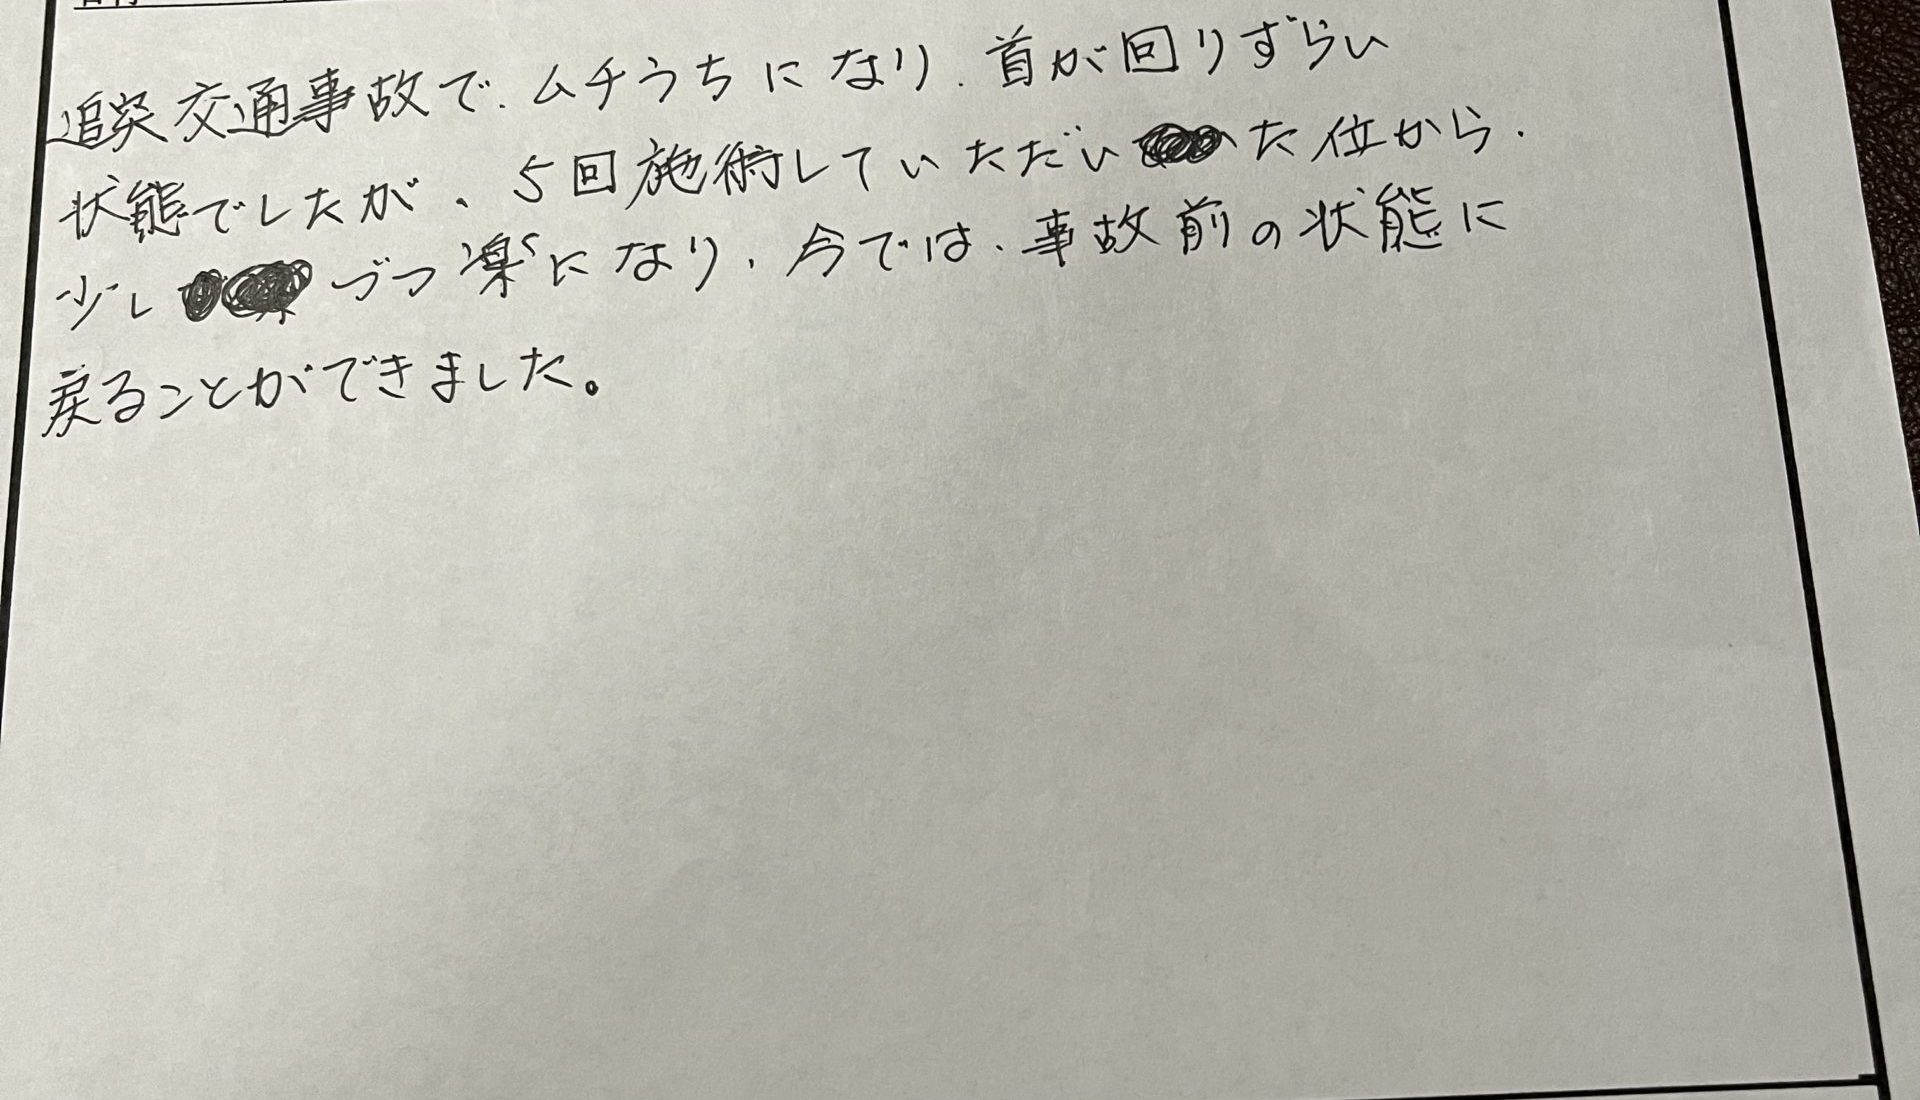 追突交通事故で、ムチうちになり、首が回りずらい
状態でしたが、5回施術していただいた位から、
少しづつ楽になり、今では、事故前の状態に
戻ることができました。